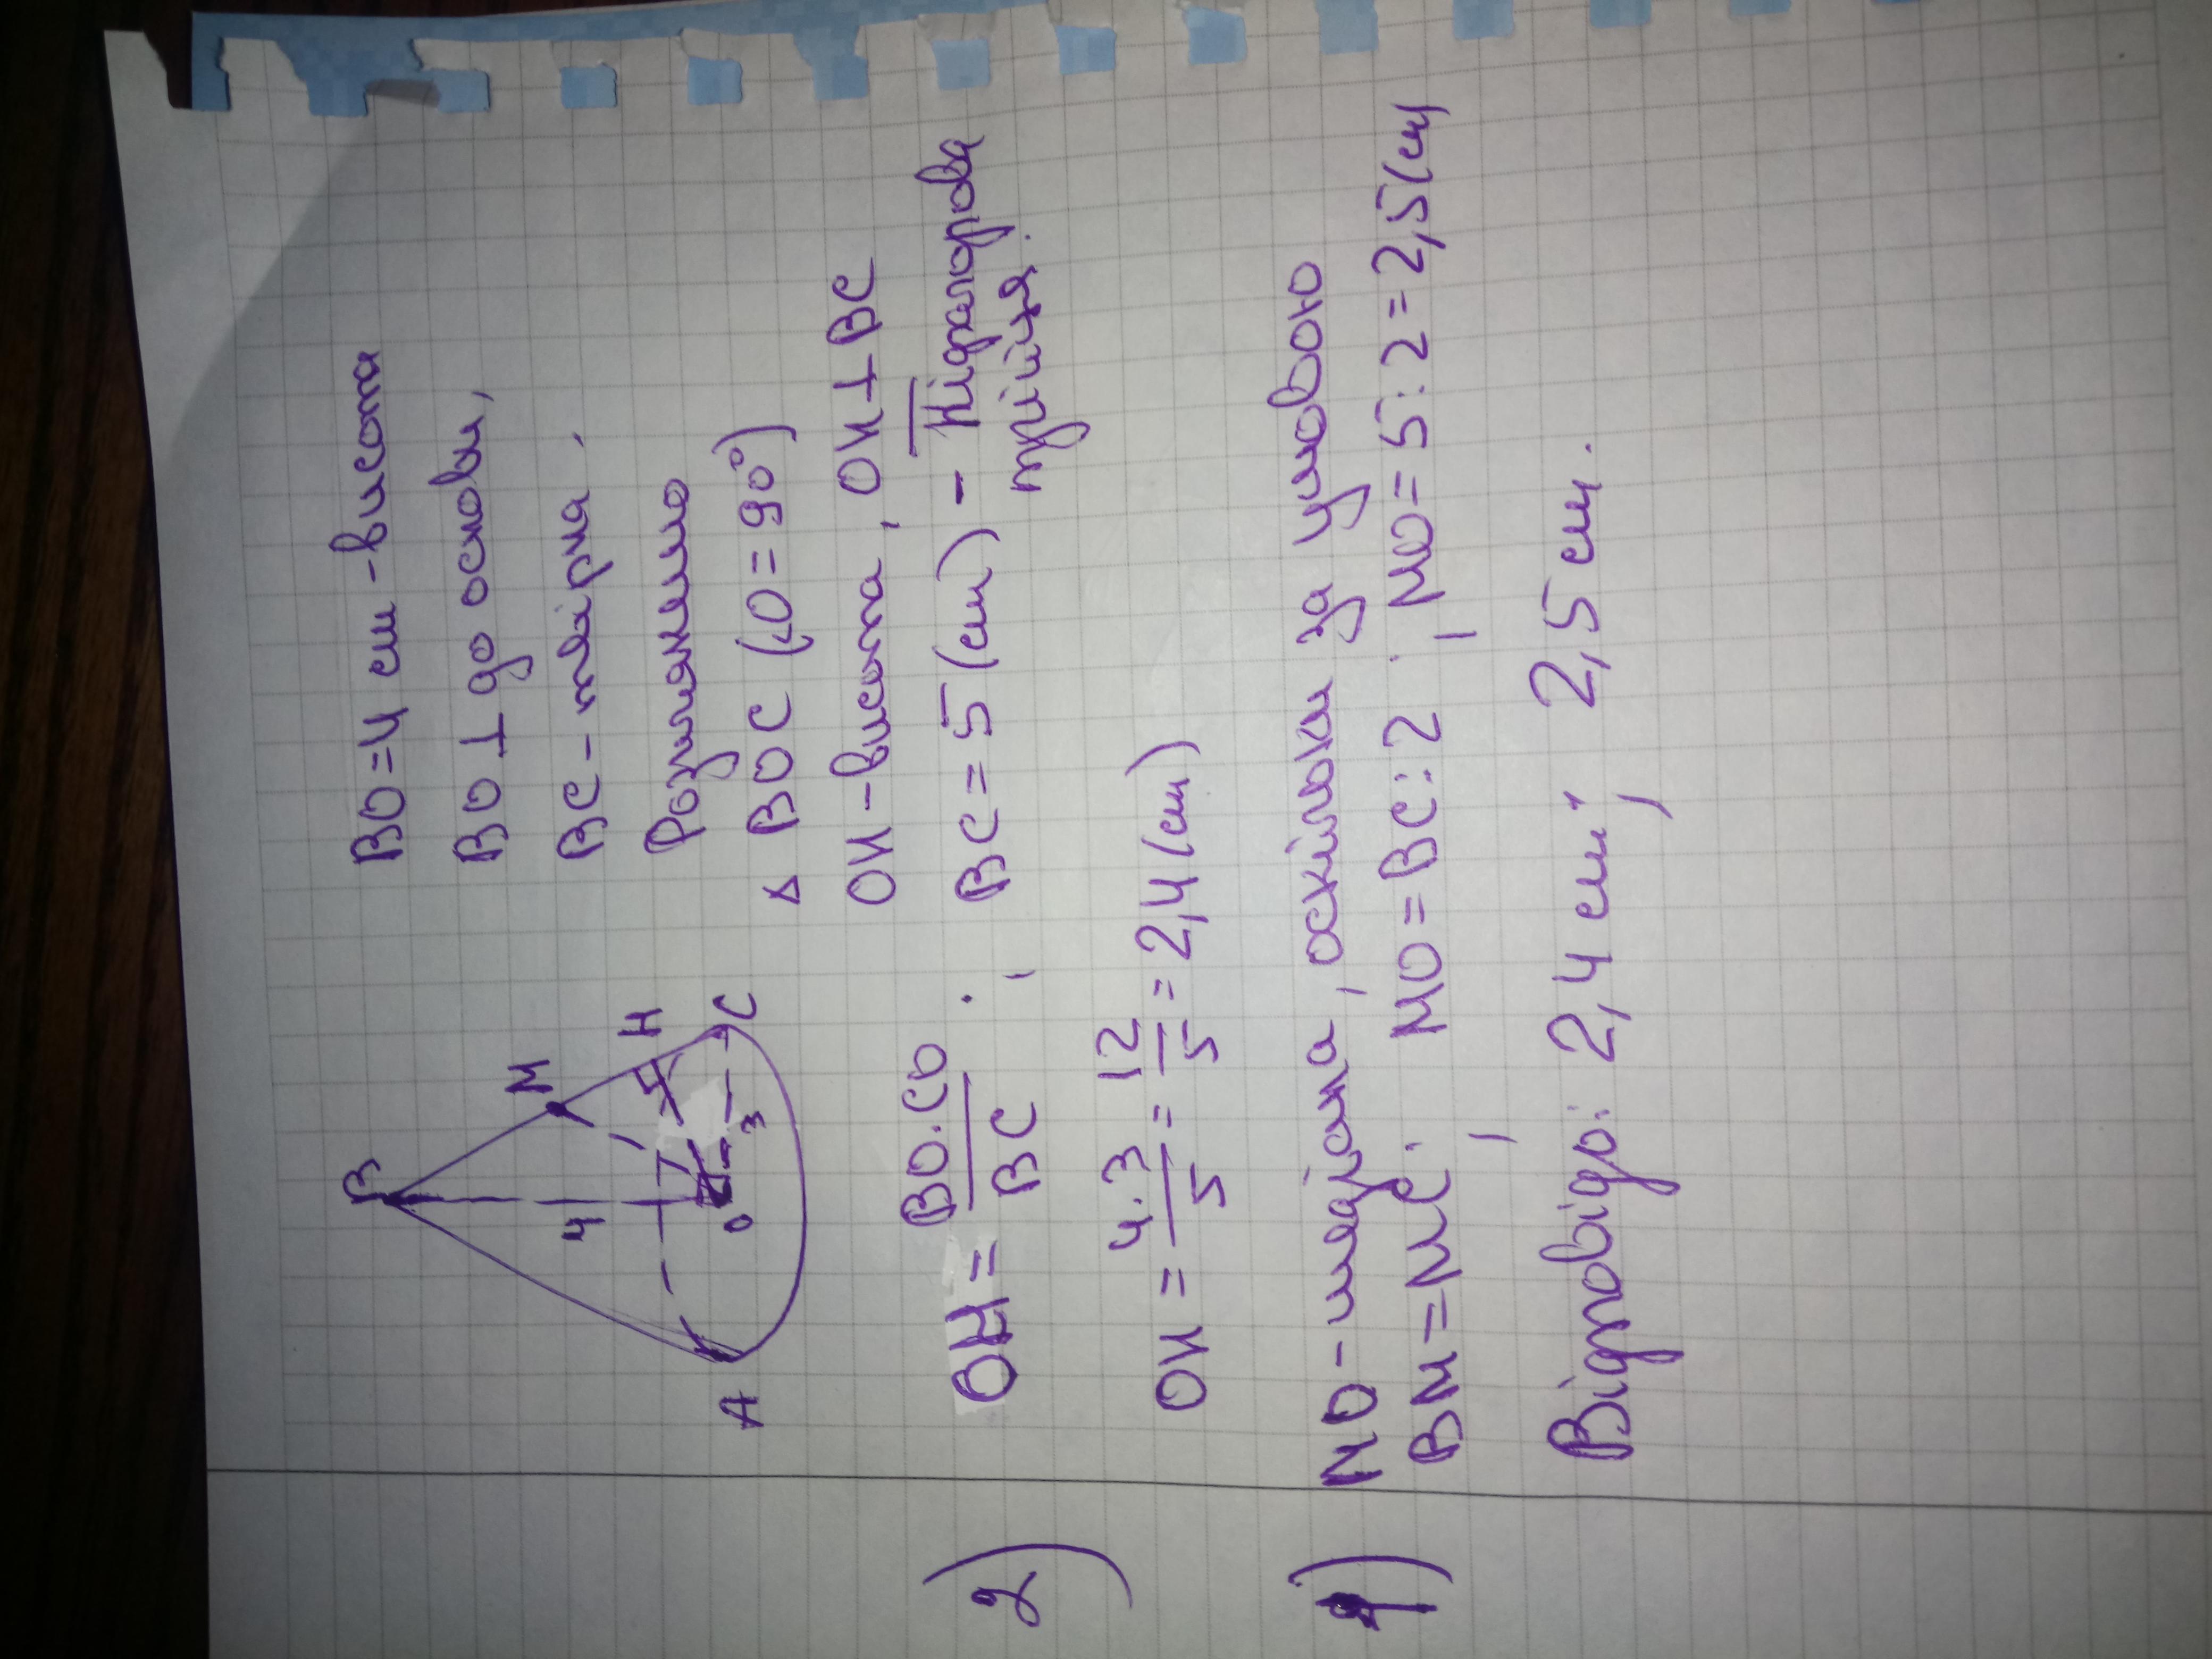 B
M
H
4
O
3
A
C
BO=4 см - висота
BO ⊥ до основи,
BC - твірна.
Розглянемо
△ BOC (∠O = 90°)
OH - висота, OH ⊥ BC
2) OH = BO·CO / BC ; BC = 5 (см) - Піфагорова
трійця.
OH = 4·3 / 5 = 12 / 5 = 2,4 (см)
1) MO - медіана, оскільки за умовою
BM = MC; MO = BC : 2 ; MO = 5 : 2 = 2,5 (см)
Відповідь: 2,4 см; 2,5 см.